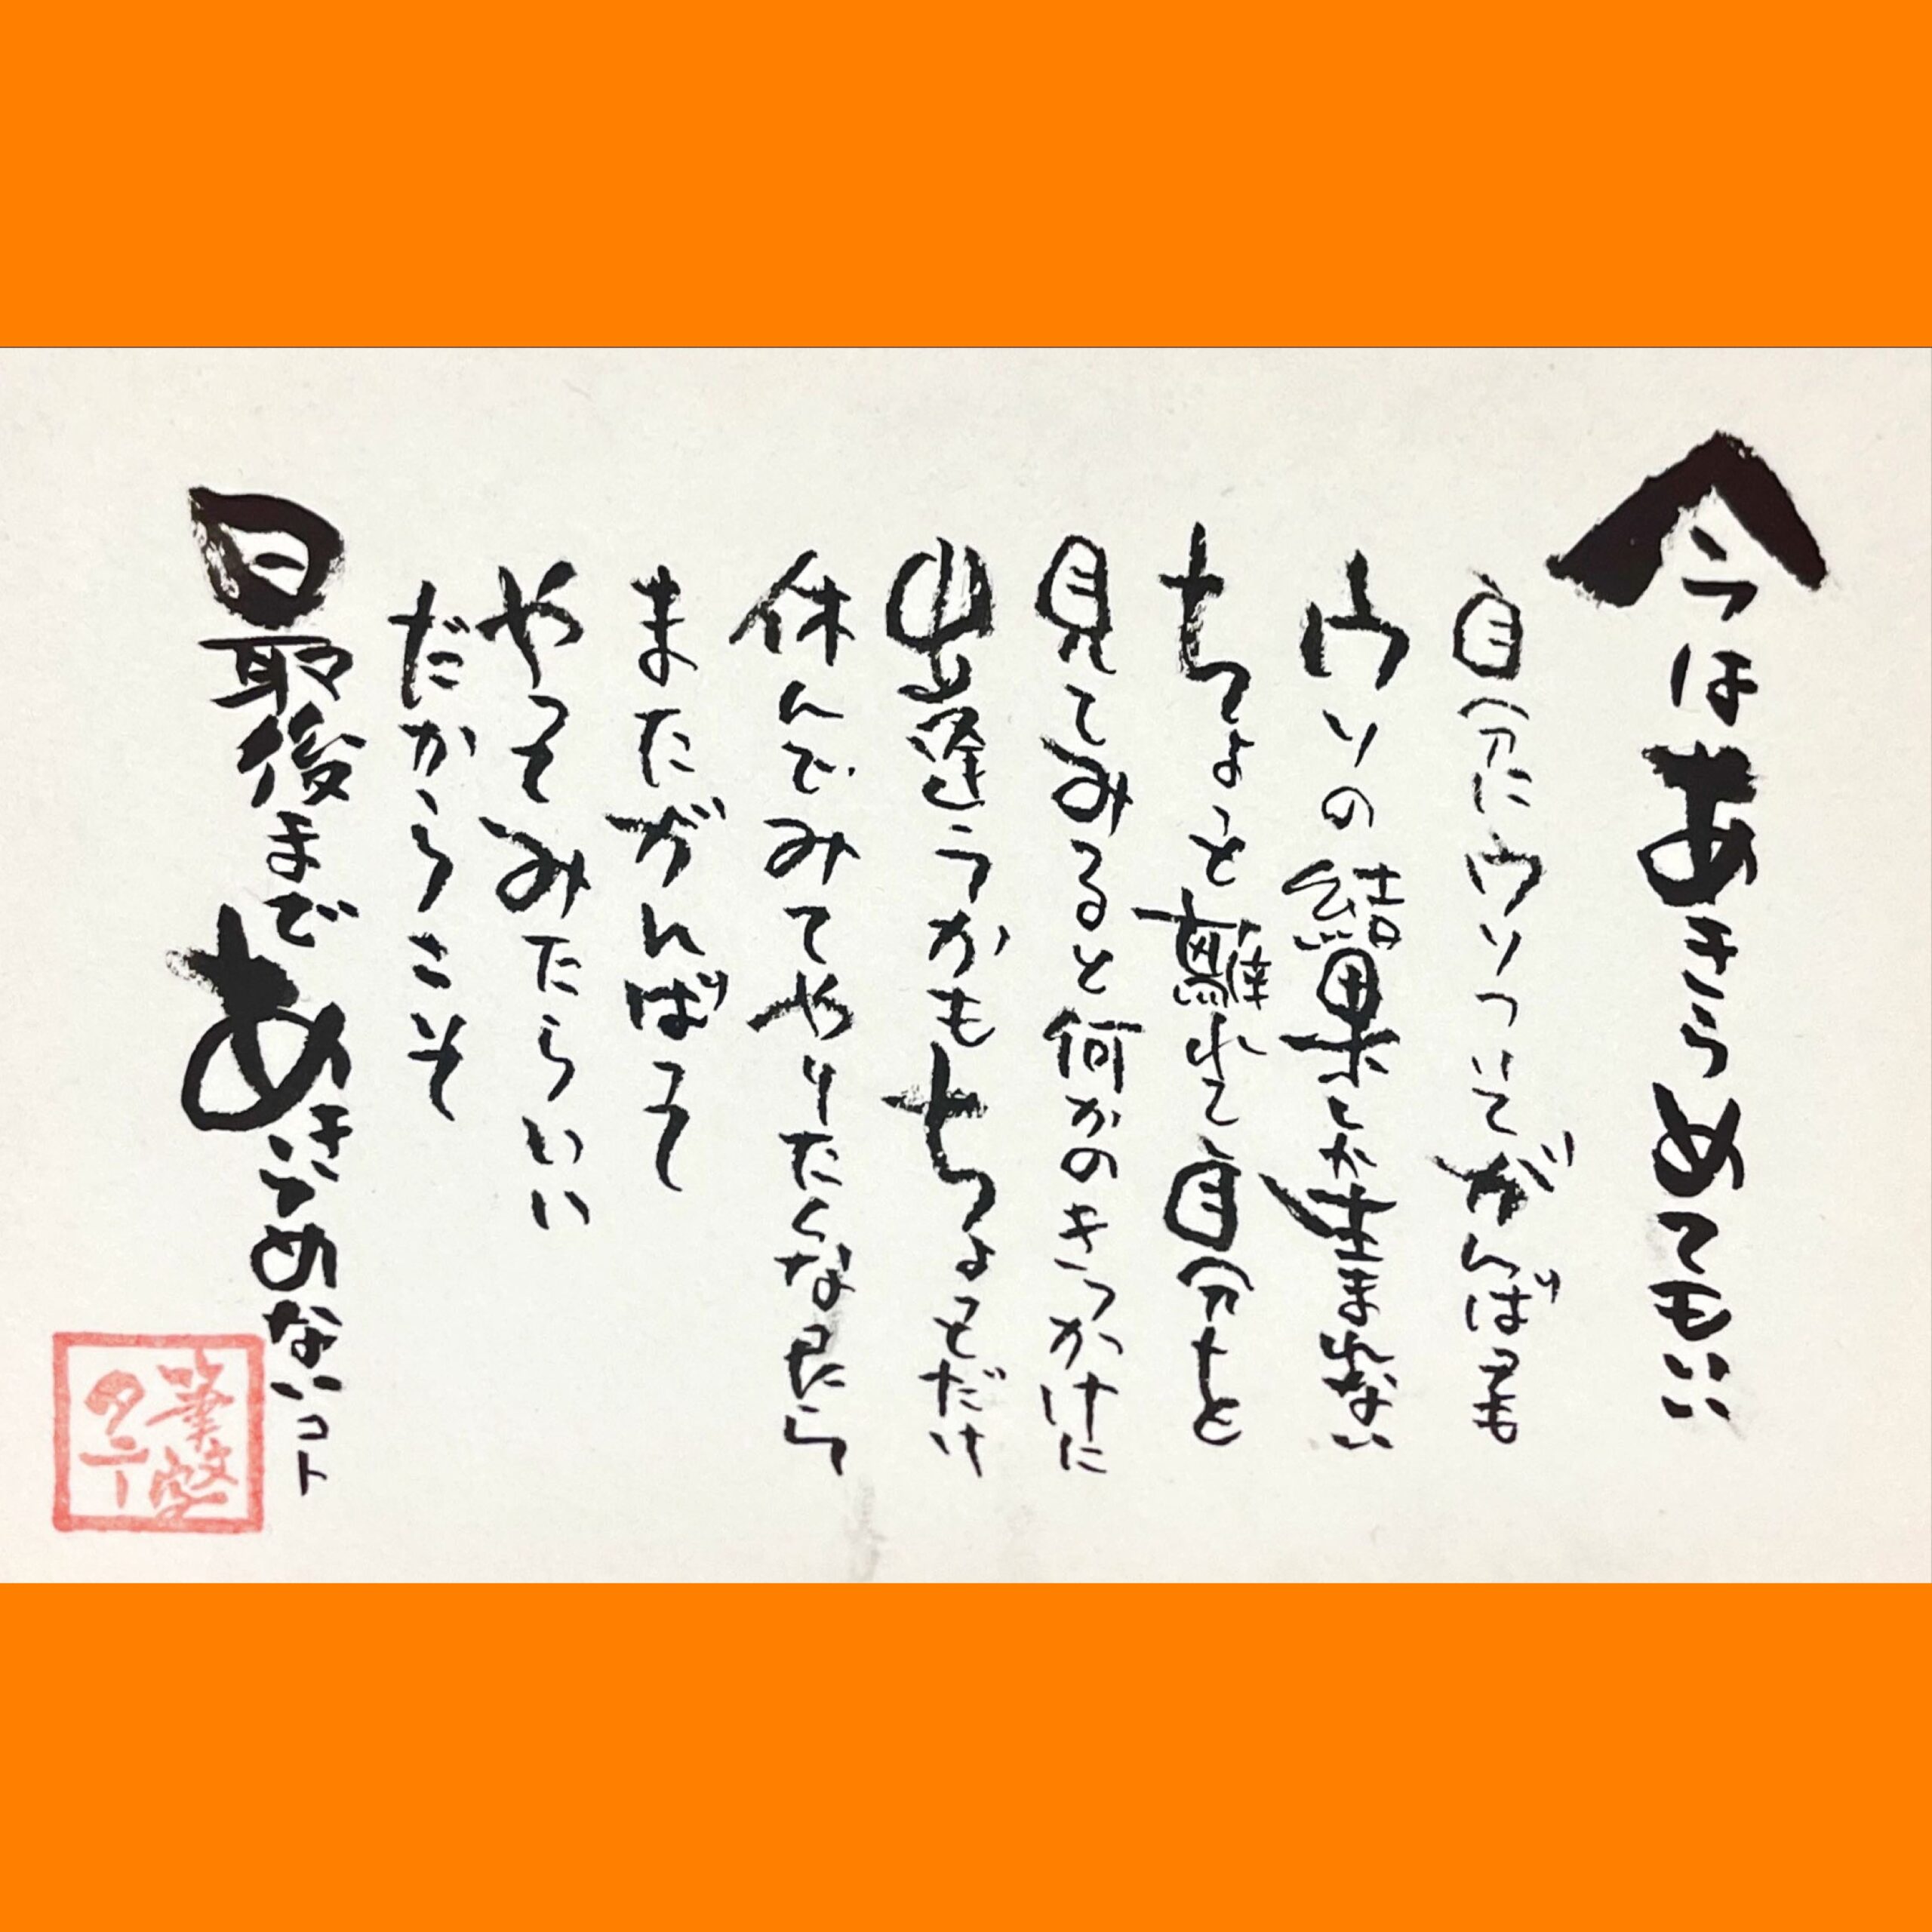 今はあきらめてもいい
自分にウソついてがんばっても
ウソの結果しか生まれない
ちょっと離れて自分を
見てみると何かのきっかけに
出逢うかもちょっとだけ
休んでみてやりたくなったら
またがんばって
やってみたらいい
だからこそ
最後まであきらめないコト
タニー